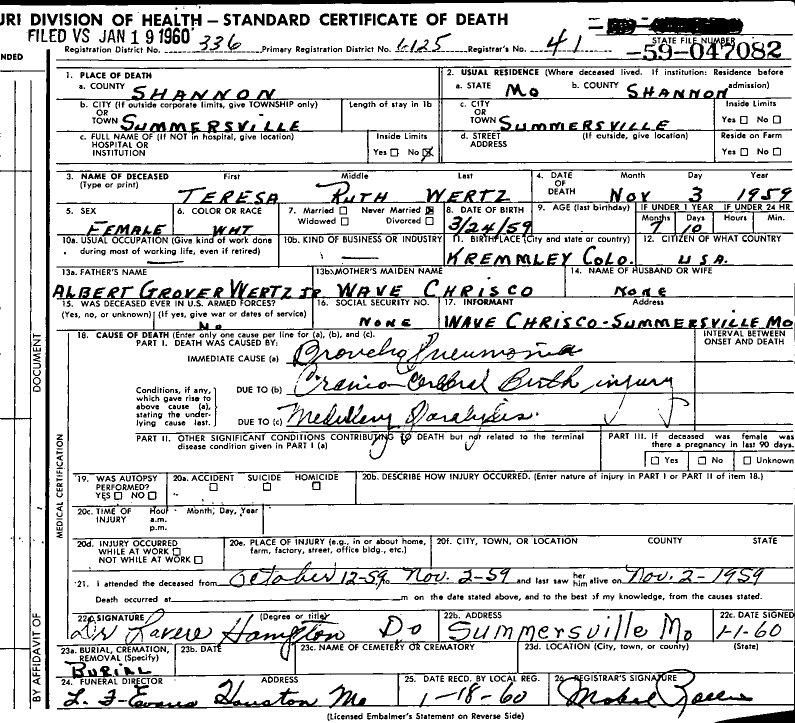 URI DIVISION OF HEALTH — STANDARD CERTIFICATE OF DEATH
FILED VS JAN 19 1960
Registration District No. 336 Primary Registration District No. 6125 Registrar's No. 41
STATE FILE NUMBER
-59-047082
NDED
1. PLACE OF DEATH
a. COUNTY SHANNON
2. USUAL RESIDENCE (Where deceased lived. If institution: Residence before admission)
a. STATE Mo b. COUNTY SHANNON
b. CITY (If outside corporate limits, give TOWNSHIP only) OR TOWN SUMMERSVILLE
Length of stay in 1b
c. CITY OR TOWN SUMMERSVILLE
Inside Limits
Yes No
c. FULL NAME OF (If NOT in hospital, give location) HOSPITAL OR INSTITUTION
Inside Limits
Yes No X
d. STREET ADDRESS (If outside, give location)
Reside on Farm
Yes No
3. NAME OF DECEASED (Type or print)
First Middle Last
TERESA RUTH WERTZ
4. DATE OF DEATH
Month Day Year
NOV 3 1959
5. SEX
FEMALE
6. COLOR OR RACE
WHT
7. Married Never Married X
Widowed Divorced
8. DATE OF BIRTH
3/24/59
9. AGE (last birthday)
IF UNDER 1 YEAR IF UNDER 24 HR
Months Days Hours Min.
7 10
10a. USUAL OCCUPATION (Give kind of work done during most of working life, even if retired)
10b. KIND OF BUSINESS OR INDUSTRY
11. BIRTHPLACE (City and state or country)
KREMMLEY COLO.
12. CITIZEN OF WHAT COUNTRY
USA.
13a. FATHER'S NAME
ALBERT GROVER WERTZ JR
13b. MOTHER'S MAIDEN NAME
WAVE CHRISCO
14. NAME OF HUSBAND OR WIFE
NONE
15. WAS DECEASED EVER IN U.S. ARMED FORCES?
(Yes, no, or unknown) (If yes, give war or dates of service)
No
16. SOCIAL SECURITY NO.
NONE
17. INFORMANT Address
WAVE CHRISCO - SUMMERSVILLE MO
18. CAUSE OF DEATH (Enter only one cause per line for (a), (b), and (c).
PART I. DEATH WAS CAUSED BY:
INTERVAL BETWEEN ONSET AND DEATH
IMMEDIATE CAUSE (a) Pneumonia
Conditions, if any, which gave rise to above cause (a), stating the underlying cause last.
DUE TO (b) Cranio-Cerebral Birth injury
DUE TO (c) Medullary Paralysis.
PART II. OTHER SIGNIFICANT CONDITIONS CONTRIBUTING TO DEATH but not related to the terminal disease condition given in PART I (a)
PART III. If deceased was female was there a pregnancy in last 90 days.
Yes No Unknown
19. WAS AUTOPSY PERFORMED?
YES NO
20a. ACCIDENT SUICIDE HOMICIDE
20b. DESCRIBE HOW INJURY OCCURRED. (Enter nature of injury in PART I or PART II of item 18.)
20c. TIME OF INJURY
Hour Month, Day, Year
a.m.
p.m.
20d. INJURY OCCURRED
WHILE AT WORK
NOT WHILE AT WORK
20e. PLACE OF INJURY (e.g., in or about home, farm, factory, street, office bldg., etc.)
20f. CITY, TOWN, OR LOCATION COUNTY STATE
21. I attended the deceased from October 12-59, to Nov. 2-59 and last saw her him alive on Nov. 2-1959
Death occurred at m on the date stated above, and to the best of my knowledge, from the causes stated.
22a. SIGNATURE (Degree or title)
Dr Lavere Hampton Do
22b. ADDRESS
Summersville Mo
22c. DATE SIGNED
1-1-60
23a. BURIAL, CREMATION, REMOVAL (Specify)
BURIAL
23b. DATE
23c. NAME OF CEMETERY OR CREMATORY
23d. LOCATION (City, town, or county) (State)
24. FUNERAL DIRECTOR ADDRESS
L. F. Evans Houston Mo
25. DATE RECD. BY LOCAL REG.
1-18-60
26. REGISTRAR'S SIGNATURE
(Licensed Embalmer's Statement on Reverse Side)
DOCUMENT
MEDICAL CERTIFICATION
BY AFFIDAVIT OF